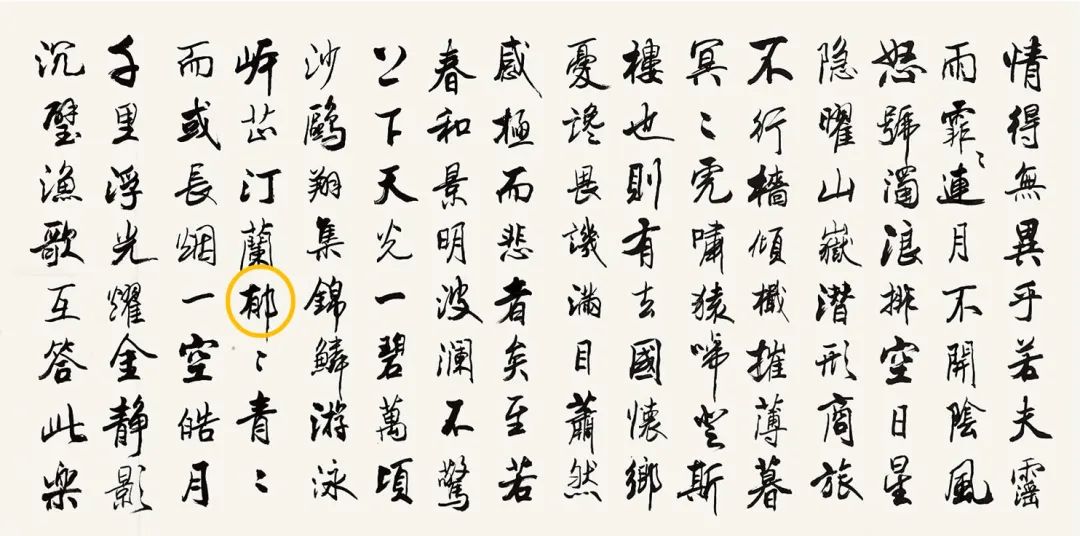 情得無異乎若夫霪
雨霏〻連月不開陰風
怒號濁浪排空日星
隐曜山嶽潛形商旅
不行檣傾檝摧薄暮
冥〻虎嘯猿啼登斯
樓也則有去國懷鄉
憂讒畏譏滿目蕭然
感極而悲者矣至若
春和景明波瀾不驚
上下天光一碧萬頃
沙鷗翔集錦鱗游泳
岸芷汀蘭郁〻青〻
而或長烟一空皓月
千里浮光耀金静影
沉璧漁歌互答此樂